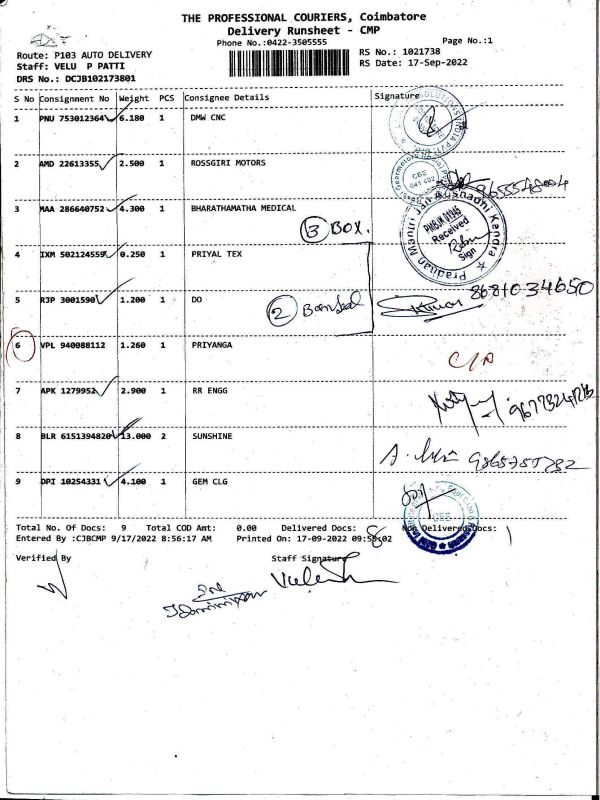 THE PROFESSIONAL COURIERS, Coimbatore
Delivery Runsheet - CMP
Phone No.:0422-3505555
Page No.:1
Route: P103 AUTO DELIVERY
RS No.: 1021738
Staff: VELU P PATTI
RS Date: 17-Sep-2022
DRS No.: DCJB102173801
S No Consignment No Weight PCS Consignee Details Signature
1 PNU 753012364 6.180 1 DMW CNC
2 AMD 22613355 2.500 1 ROSSGIRI MOTORS
3 MAA 286640752 4.300 1 BHARATHAMATHA MEDICAL
Pradhan Mantri Jan Aushadhi Kendra
Received
Sign
3 BOX.
4 IXM 502124559 0.250 1 PRIYAL TEX
5 RJP 3001590 1.200 1 DO
2
8681034650
6 VPL 940088112 1.260 1 PRIYANGA
7 APK 1279952 2.900 1 RR ENGG
8 BLR 6151394820 13.000 2 SUNSHINE
9 DPI 10254331 4.100 1 GEM CLG
Total No. Of Docs: 9 Total COD Amt: 0.00 Delivered Docs: 8 Non Delivered Docs: 1
Entered By :CJBCMP 9/17/2022 8:56:17 AM Printed On: 17-09-2022 09:58:02
Verified By Staff Signature